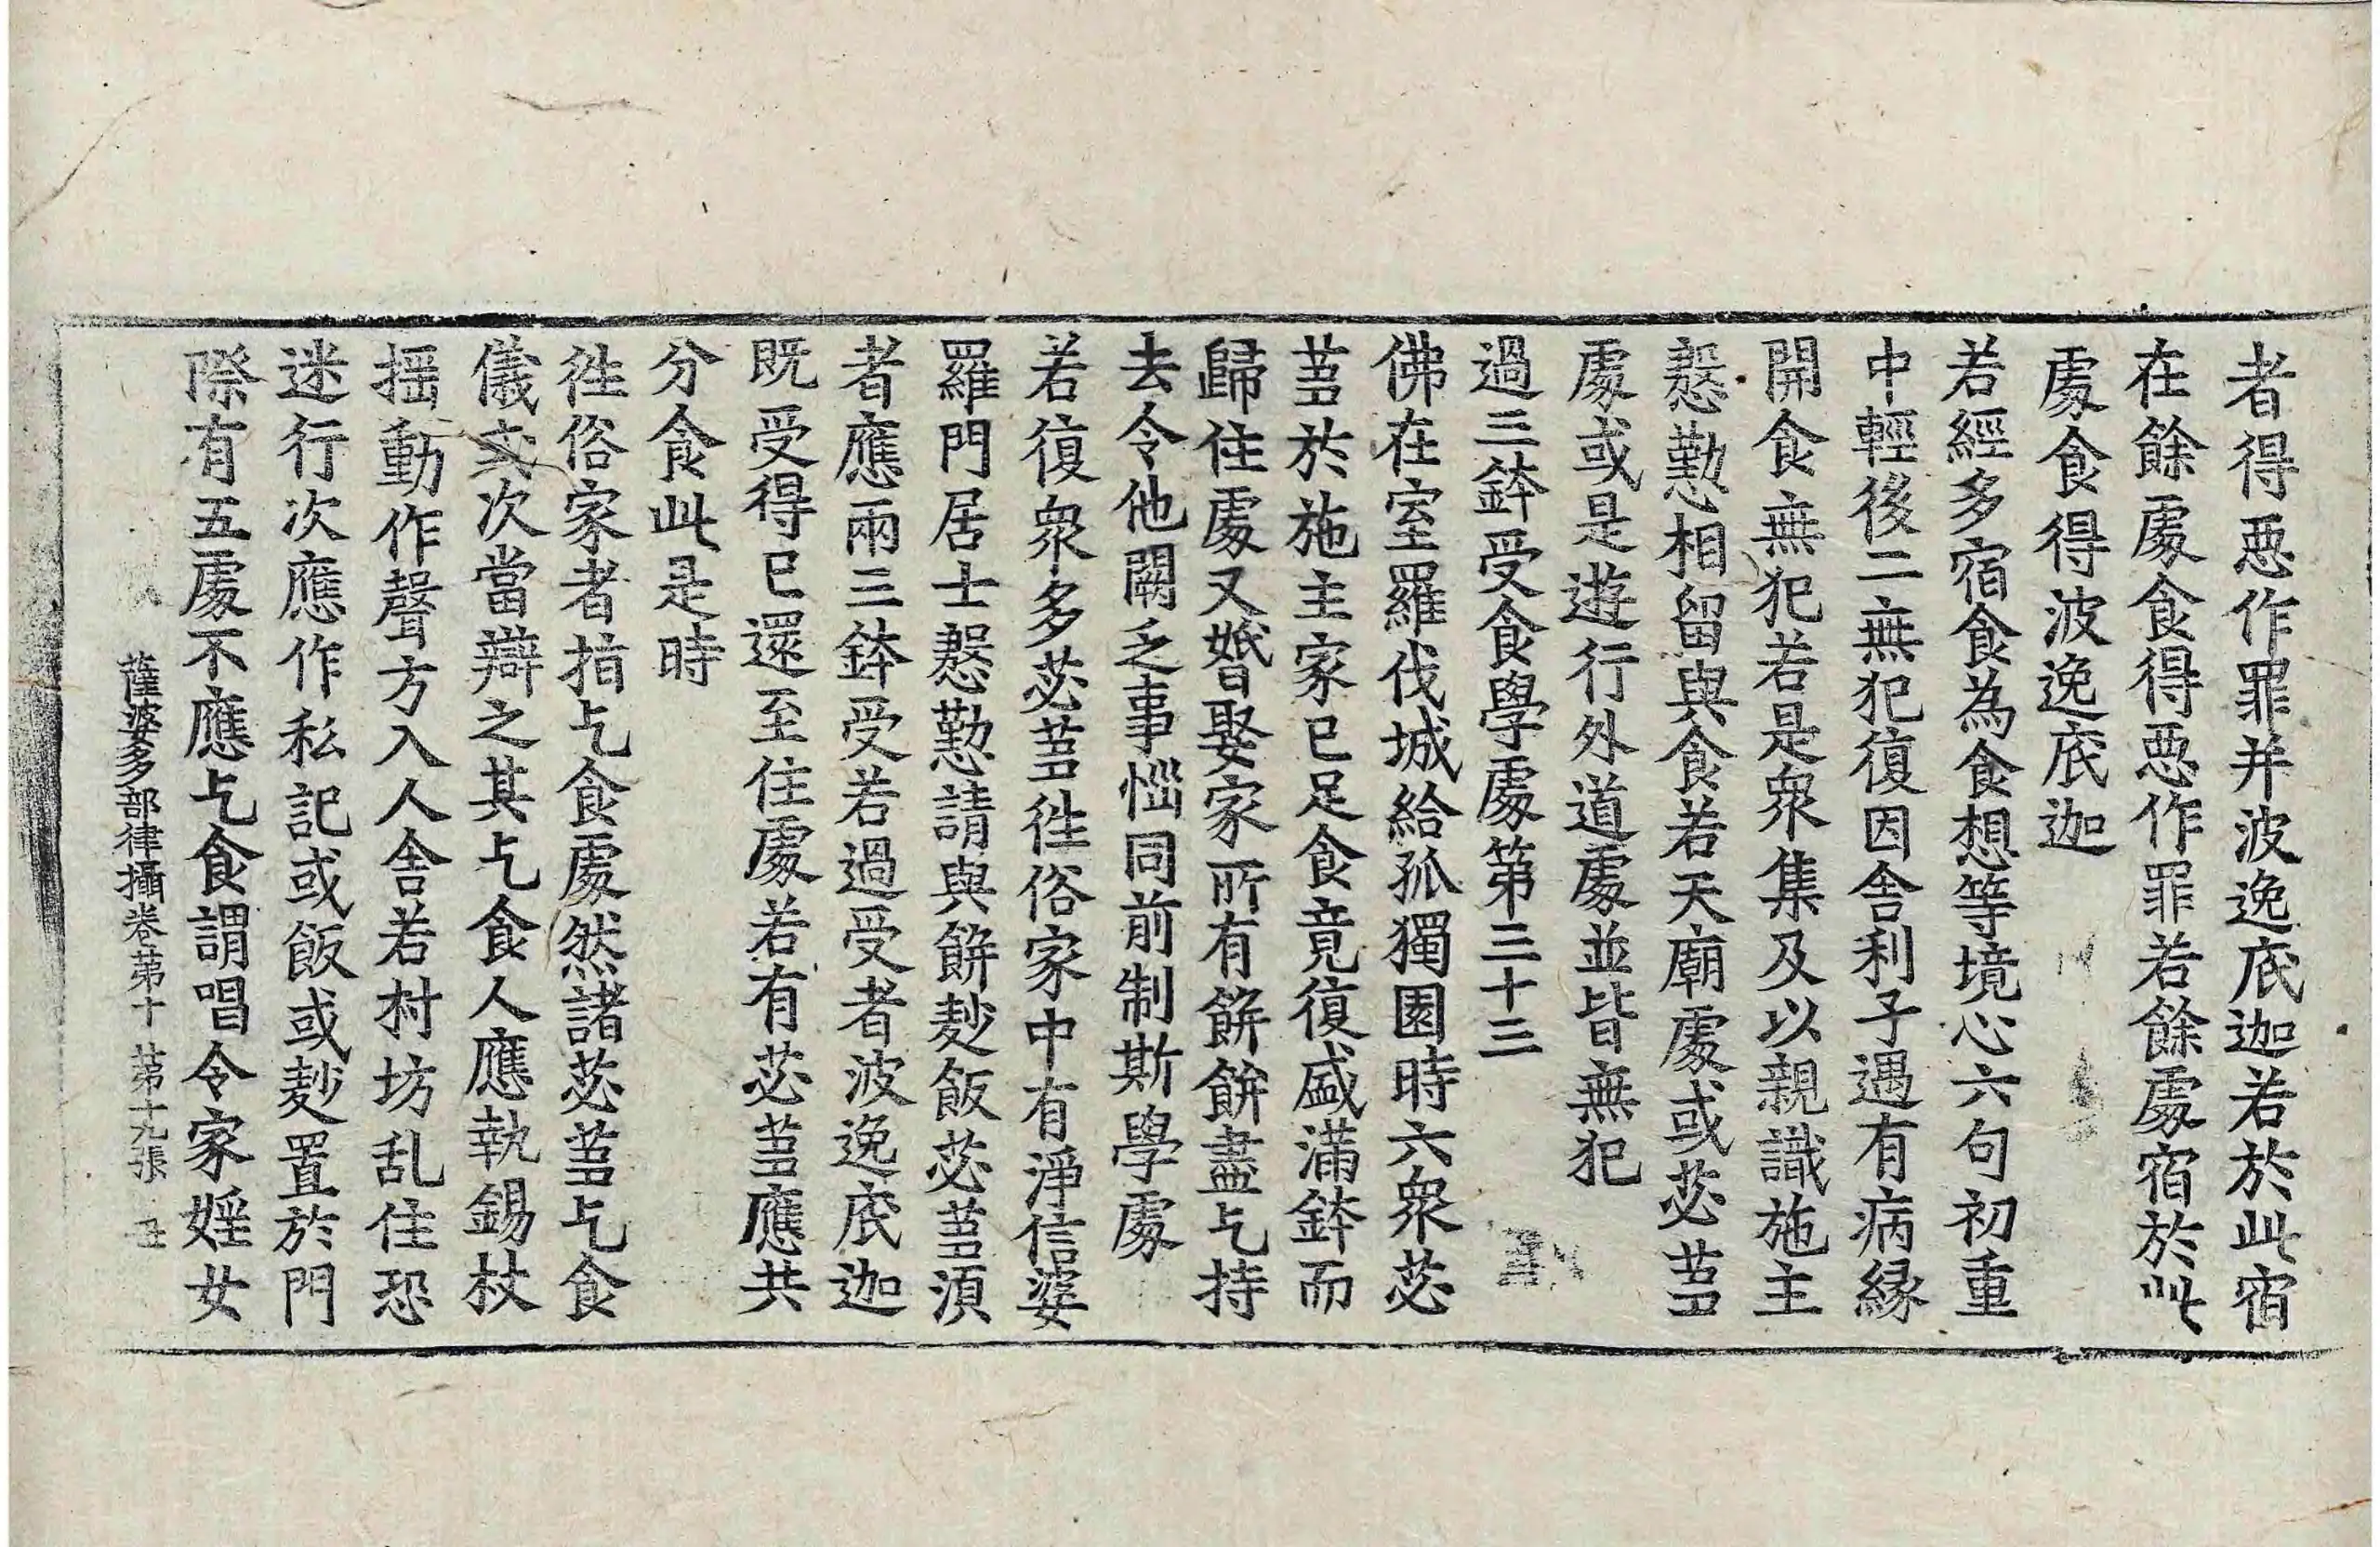 者得悪作罪并波逸底迦若於此宿
在餘處食得悪作罪若餘處宿於此
處食得波逸底迦
若經多宿食為食想等境心六句初重
中輕後二無犯復因舍利子遇有病縁
開食無犯若是衆集及以親識施主
慇懃相留與食若天廟處或苾蒭
處或是遊行外道處並皆無犯
過三鉢受食學處第三十三
佛在室羅伐城給孤獨園時六衆苾
蒭於施主家已足食竟復盛滿鉢而
歸住處又婚娶家所有餅餅盡乞持
去令他闕乏事惱同前制斯學處
若復衆多苾蒭徃俗家中有淨信婆
羅門居士慇懃請與餅麨飯苾蒭湏
者應兩三鉢受若過受者波逸底迦
既受得已還至住處若有苾蒭應共
分食此是時
徃俗家者指乞食處然諸苾蒭乞食
儀式次當辯之其乞食人應執錫杖
揺動作聲方入人舍若村坊乱住恐
迷行次應作私記或飯或麨置於門
際有五處不應乞食謂唱令家婬女
薩婆多部律攝卷第十 第十九張